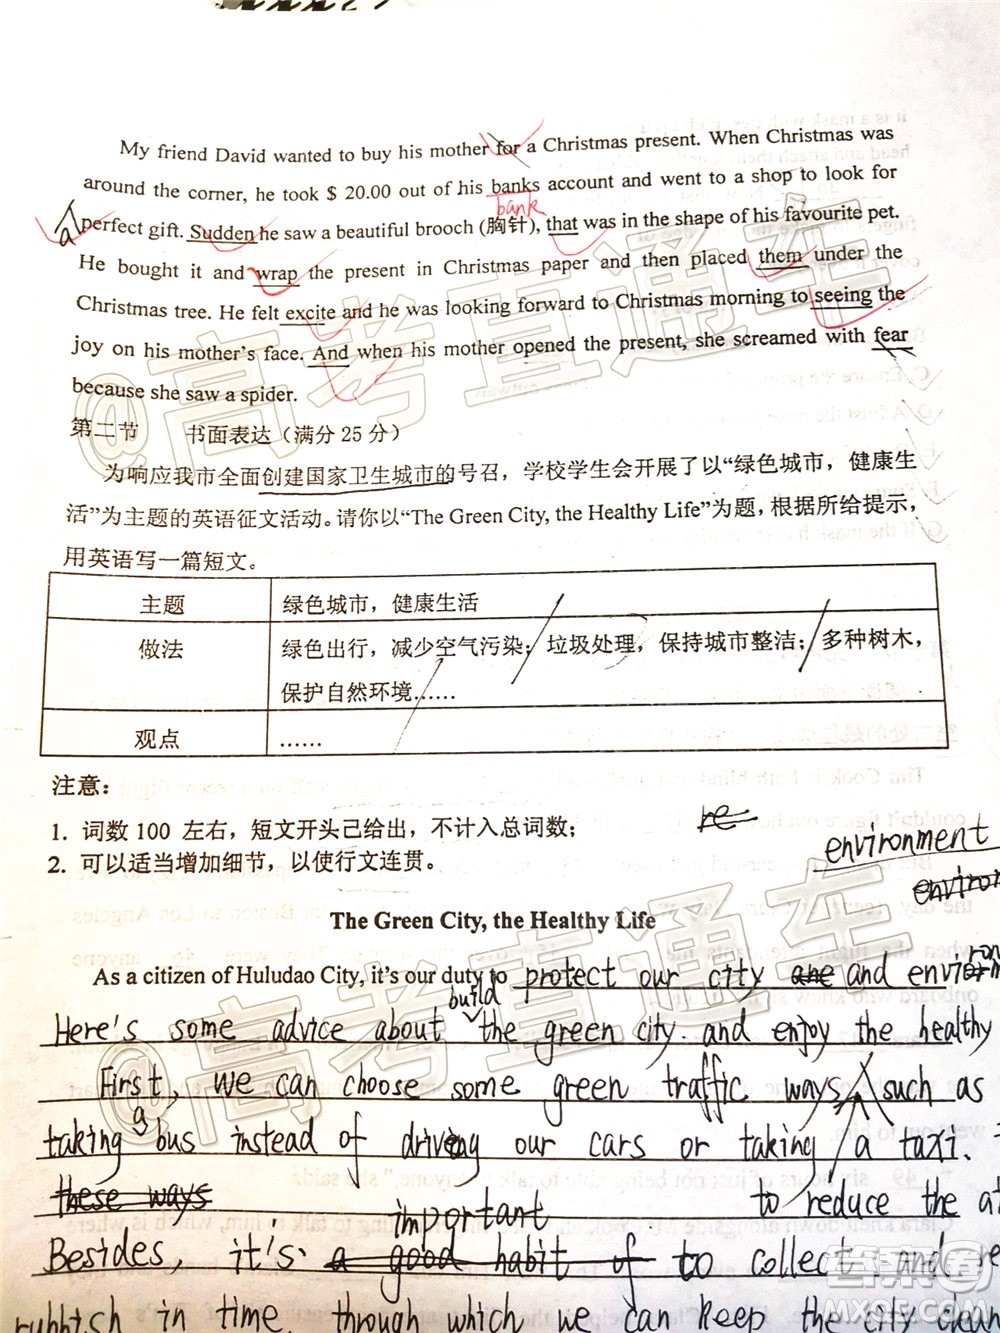 My friend David wanted to buy his mother for a Christmas present. When Christmas was
around the corner, he took $ 20.00 out of his banks account and went to a shop to look for
bank
a perfect gift. Sudden he saw a beautiful brooch (胸针), that was in the shape of his favourite pet.
He bought it and wrap the present in Christmas paper and then placed them under the
Christmas tree. He felt excite and he was looking forward to Christmas morning to seeing the
joy on his mother's face. And when his mother opened the present, she screamed with fear
because she saw a spider.
第二节 书面表达（满分 25 分）
为响应我市全面创建国家卫生城市的号召，学校学生会开展了以“绿色城市，健康生
活”为主题的英语征文活动。请你以“The Green City, the Healthy Life”为题，根据所给提示，
用英语写一篇短文。
主题 绿色城市，健康生活
做法 绿色出行，减少空气污染；垃圾处理，保持城市整洁；多种树木，
保护自然环境……
观点 ……
注意：
1. 词数 100 左右，短文开头已给出，不计入总词数；
re
2. 可以适当增加细节，以使行文连贯。
environment
environ
The Green City, the Healthy Life
As a citizen of Huludao City, it's our duty to protect our city are and environ
build
Here's some advice about the green city. and enjoy the healthy
First, we can choose some green traffic ways such as
taking a bus instead of driving our cars or taking a taxi.
these ways to reduce the
important
Besides, it's a good habit of to collect and re
rubbish in time, through which we can keep the city clean
@高考直通车
@高考直通车
答案圈
MXQE.COM